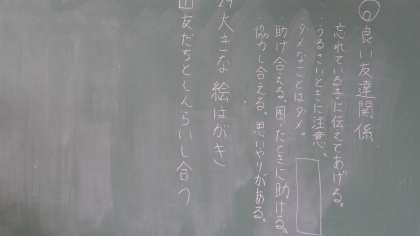 良い友達関係
忘れている子に伝えてあげる。
・うるさいときに注意。
ダメなことはダメ。
助け合える。困ったときに助ける。
協力し合える。思いやりがある。
大きな絵はがき
友だちとしんらいし合う